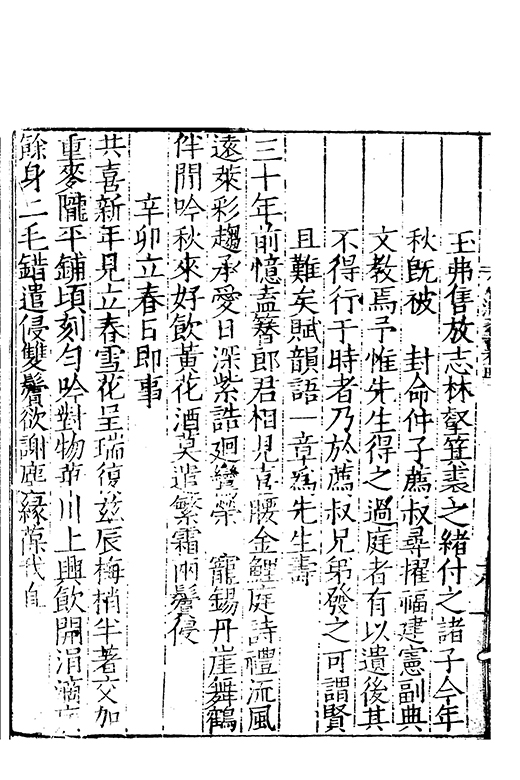 玉弗售放志林壑箕裘之緒付之諸子今年
秋旣被 封命仲子薦叔彞擢福建憲副典
文教焉予惟先生得之過庭者有以遺後其
不得行于時者乃於薦叔兄弟發之可謂賢
且難矣賦韻語一章爲先生壽
三十年前憶盍簪郎君相見喜腰金鯉庭詩禮流風
遠萊彩趨承愛日深紫誥迴鸞榮 寵錫丹崖舞鶴
伴閒吟秋來好飲黃花酒莫遣繁霜兩鬢侵
辛卯立春日即事
共喜新年見立春雪花呈瑞復茲辰梅梢半著交加
重麥隴平鋪頃刻勻吟對物華川上興飲開涓滴
餘身二毛錯遣侵雙鬢欲謝塵緣葆我